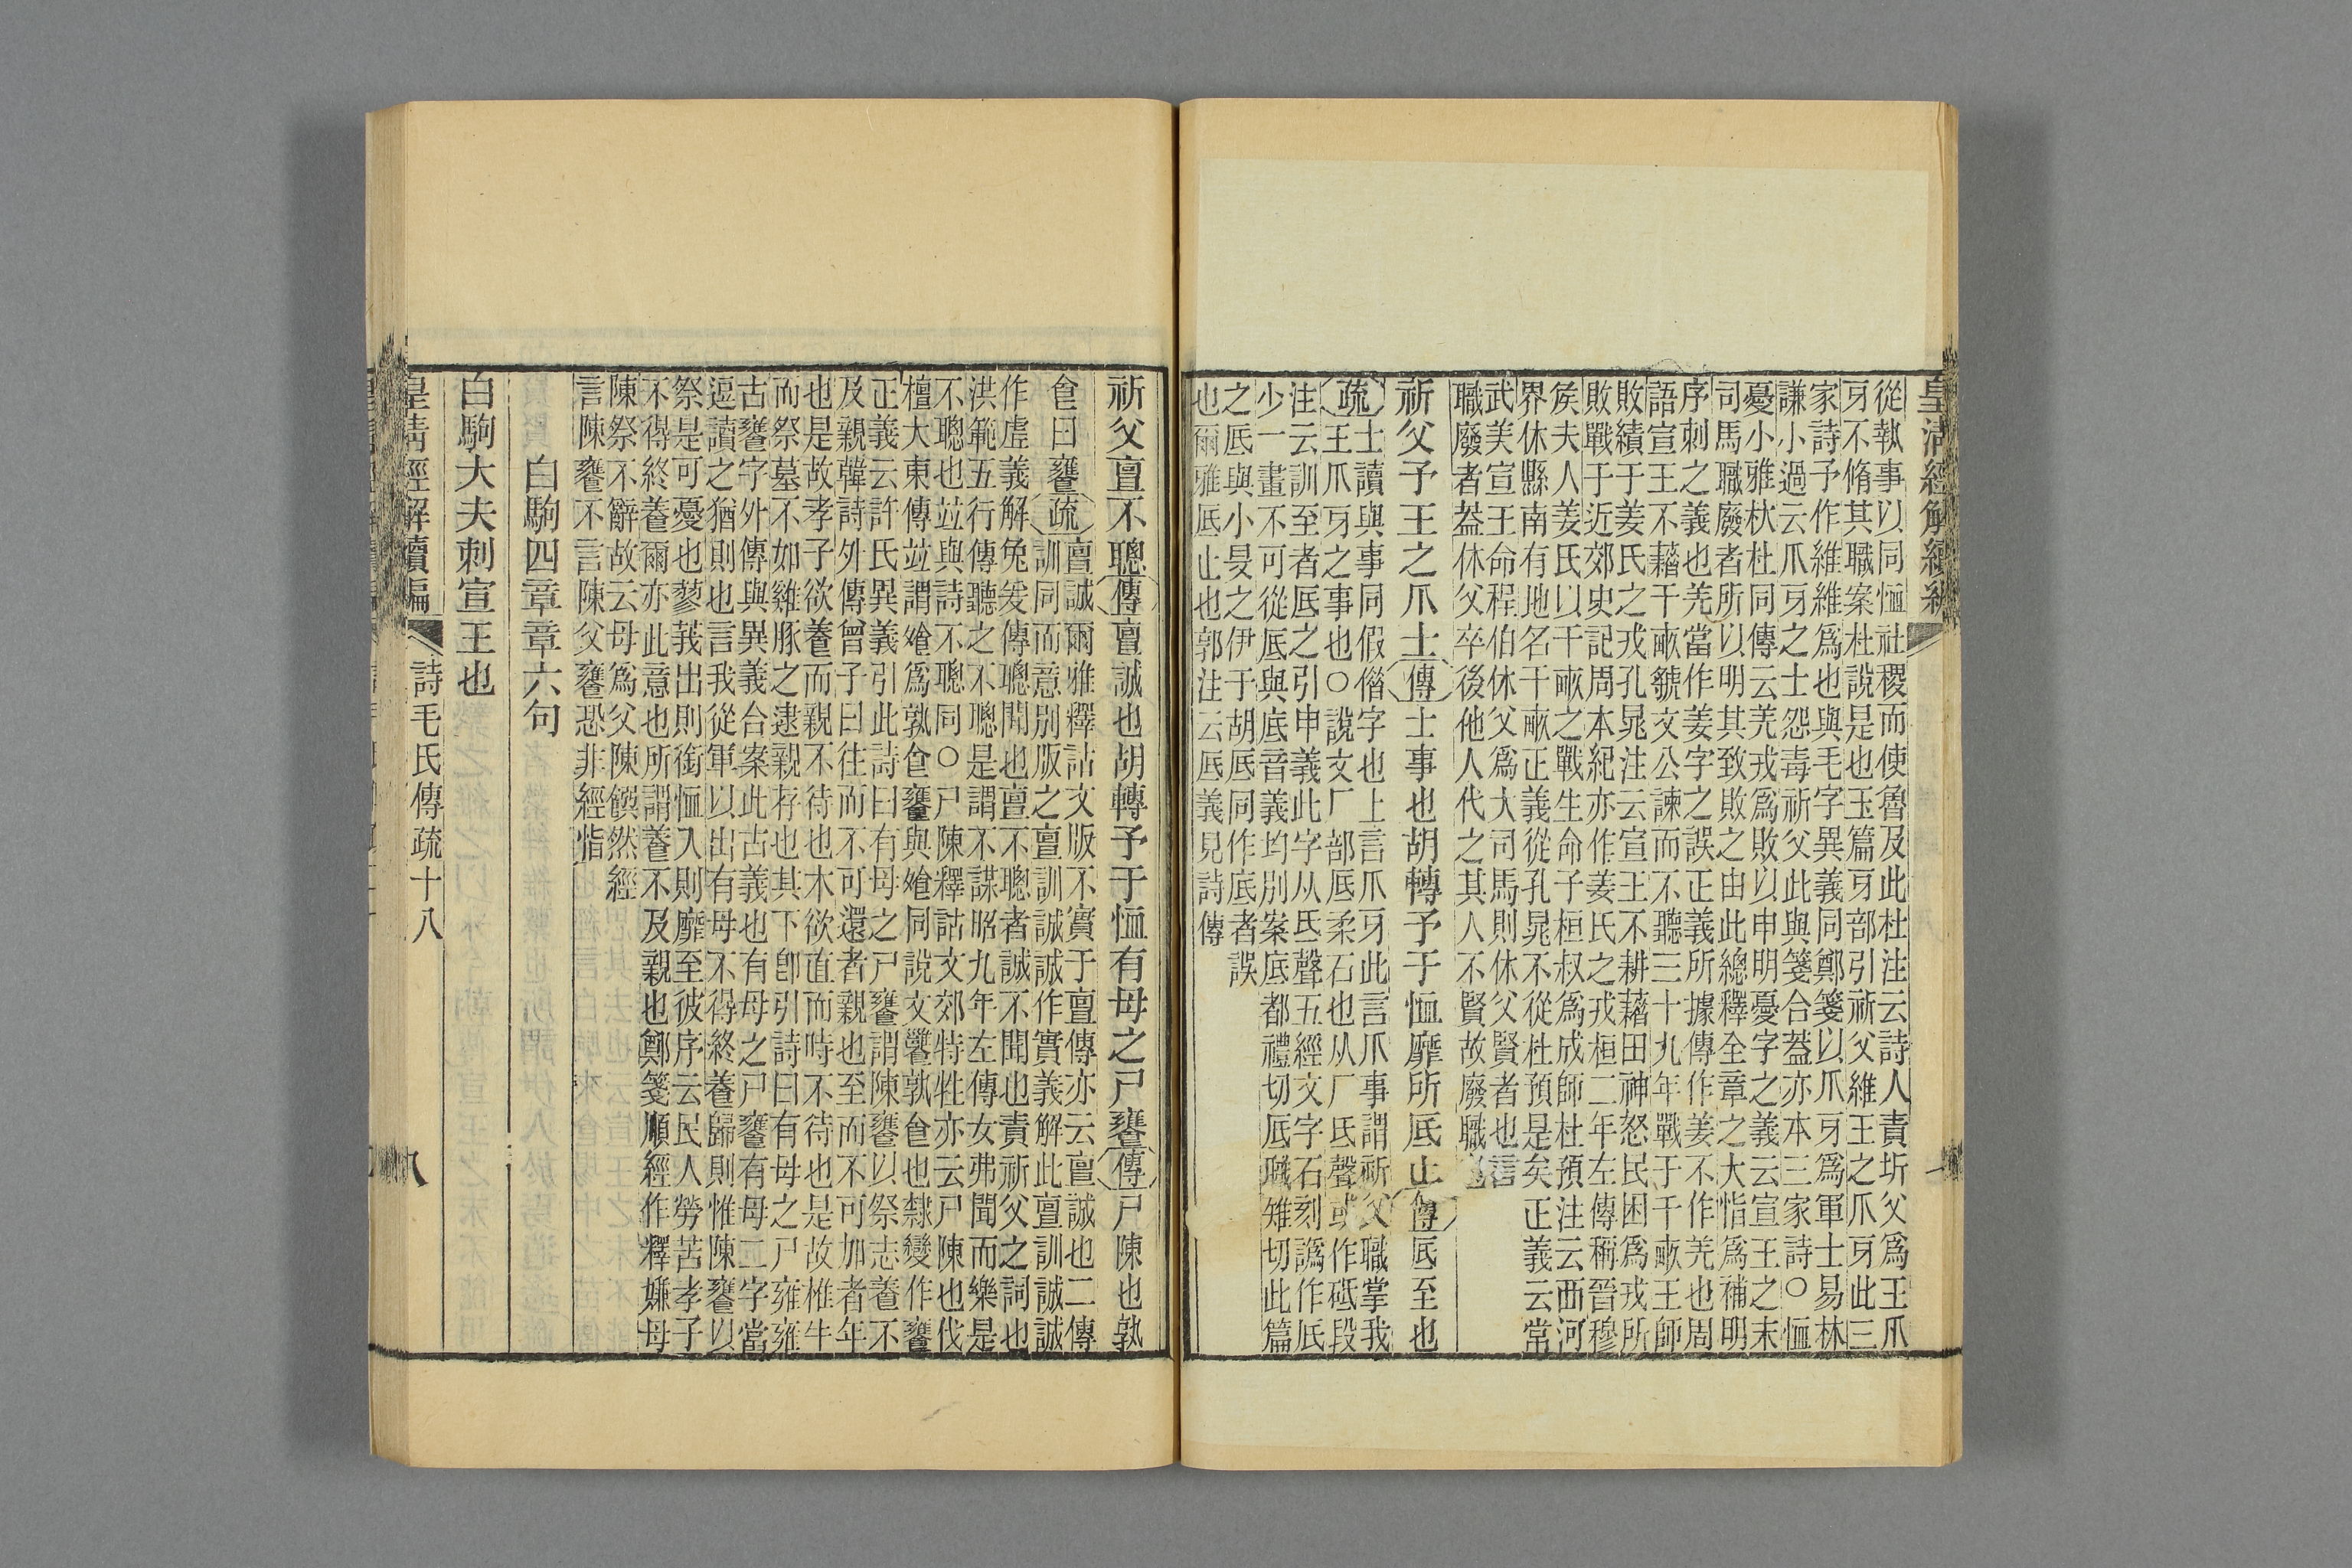 皇清經解續編
從執事以同恤社稷而使魯及此杜注云詩人責圻父爲王爪
牙不脩其職案杜說是也玉篇牙部引祈父維王之爪牙此三
家詩予作維維爲也與毛字異義同鄭箋以爪牙爲軍士易林
謙小過云爪牙之士怨毒祈父此與箋合葢亦本三家詩○恤
憂小雅杕杜同傳云羌戎爲敗以申明憂字之義云宣王之末
司馬職廢者所以明其致敗之由此總釋全章之大恉爲補明
序刺之義也羌當作姜字之誤正義所據傳作姜不作羌也周
語宣王不藉千畝虢文公諫而不聽三十九年戰于千畝王師
敗績于姜氏之戎孔晁注云宣王不耕藉田神怒民困爲戎所
敗戰于近郊史記周本紀亦作姜氏之戎桓二年左傳稱晉穆
矦夫人姜氏以千畝之戰生命子桓叔爲成師杜預注云西河
界休縣南有地名千畝正義從孔晁不從杜預是矣正義云常
武美宣王命程伯休父爲大司馬則休父賢者也言
職廢者葢休父卒後他人代之其人不賢故廢職也
祈父予王之爪士傳士事也胡轉予于恤靡所厎止傳厎至也
疏士讀與事同假借字也上言爪牙此言爪事謂祈父職掌我
王爪牙之事也○說文厂部厎柔石也从厂氐聲或作砥段
注云訓至者厎之引申義此字从氐聲五經文字石刻譌作厎
少一畫不可從厎與底音義均別案底都禮切厎職雉切此篇
之厎與小旻之伊于胡厎同作底者誤
也爾雅厎止也郭注云厎義見詩傳
祈父亶不聰傳亶誠也胡轉予于恤有母之尸饔傳尸陳也孰
食曰饔疏亶誠爾雅釋詁文版不實于亶傳亦云亶誠也二傳
訓同而意別版之亶訓誠誠作實義解此亶訓誠誠
作虛義解兔爰傳聰聞也亶不聰者誠不聞也責祈父之詞也
洪範五行傳聽之不聰是謂不謀昭九年左傳女弗聞而樂是
不聰也竝與詩不聰同○尸陳釋詁文郊特牲亦云尸陳也伐
檀大東傳竝謂飧爲孰食饔與飧同說文饔孰食也隸變作饔
正義云許氏異義引此詩曰有母之尸饔謂陳饔以祭志養不
及親韓詩外傳曾子曰往而不可還者親也至而不可加者年
也是故孝子欲養而親不待也木欲直而時不待也是故椎牛
而祭墓不如雞豚之逮親存也其下卽引詩曰有母之尸雍雍
古饔字外傳與異義合案此古義也有母之尸饔有母二字當
逗讀之猶則也言我從軍以出有母不得終養歸則惟陳饔以
祭是可憂也蓼莪出則銜恤入則靡至彼序云民人勞苦孝子
不得終養爾亦此意也所謂養不及親也鄭箋順經作釋嫌母
陳祭不辭故云母爲父陳饌然經
言陳饔不言陳父饔恐非經恉
白駒四章章六句
白駒大夫刺宣王也
皇清經解續編 詩毛氏傳疏十八 八